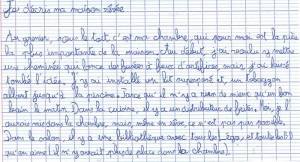 J'ai décris ma maison rêvée
Au grenier, sous le toit c'est ma chambre, qui pour moi est la pièce
la plus importante de la maison. Au début j'ai voulu y mettre
une cheminée qui lance des fusées à feux d'artifices mais j'ai laissé
tombé l'idée. J'y ai installé un lit superposé et un toboggan
allant jusqu'à la piscine. Parce qu'il n'y a rien de mieux qu'un bon
bain le matin. Dans la cuisine, il y a un distributeur de frites. Non, je l'
aurais mis dans la chambre, mais même en rêve, ce n'est pas possible.
Dans le salon, il y a une bibliothèque avec tous les Lego, et toute les B
qu'on aime (il n'y avait plus de place dans la chambre).